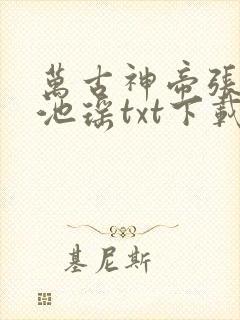 萬古神帝張
池瑤txt下載
基尼斯